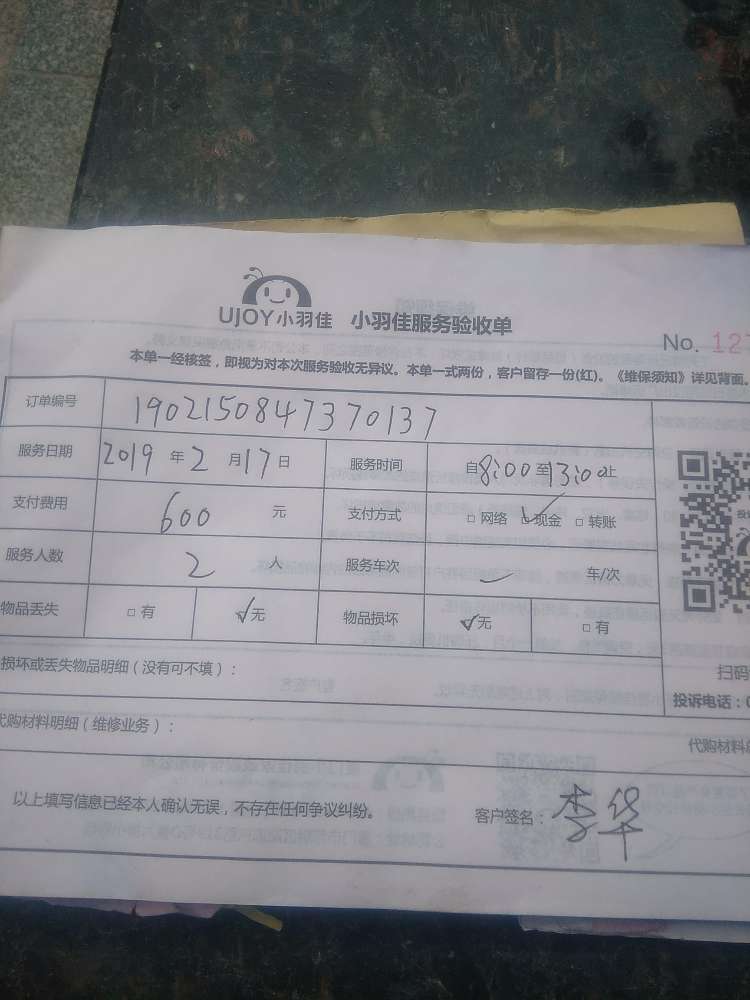 UJOY小羽佳 小羽佳服务验收单
No. 127
本单一经核签，即视为对本次服务验收无异议。本单一式两份，客户留存一份(红)。《维保须知》详见背面。
订单编号 1902150847370137
服务日期 2019 年 2 月 17 日 服务时间 自8:00至13:00止
支付费用 600 元 支付方式 □网络 ☑现金 □转账
服务人数 2 人 服务车次 一 车/次
物品丢失 □有 ☑无 物品损坏 ☑无 □有
损坏或丢失物品明细（没有可不填）：
扫码
投诉电话：0
代购材料明细（维修业务）：
代购材料
以上填写信息已经本人确认无误，不存在任何争议纠纷。
客户签名：李华